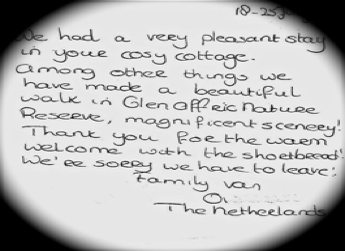 18-25
We had a very pleasant stay
in your cosy cottage.
Among other things we
have made a beautiful
walk in Glen Affric Nature
Reserve, magnificent scenery!
Thank you for the warm
welcome with the shortbread!
We're sorry we have to leave:
family van
The Netherlands